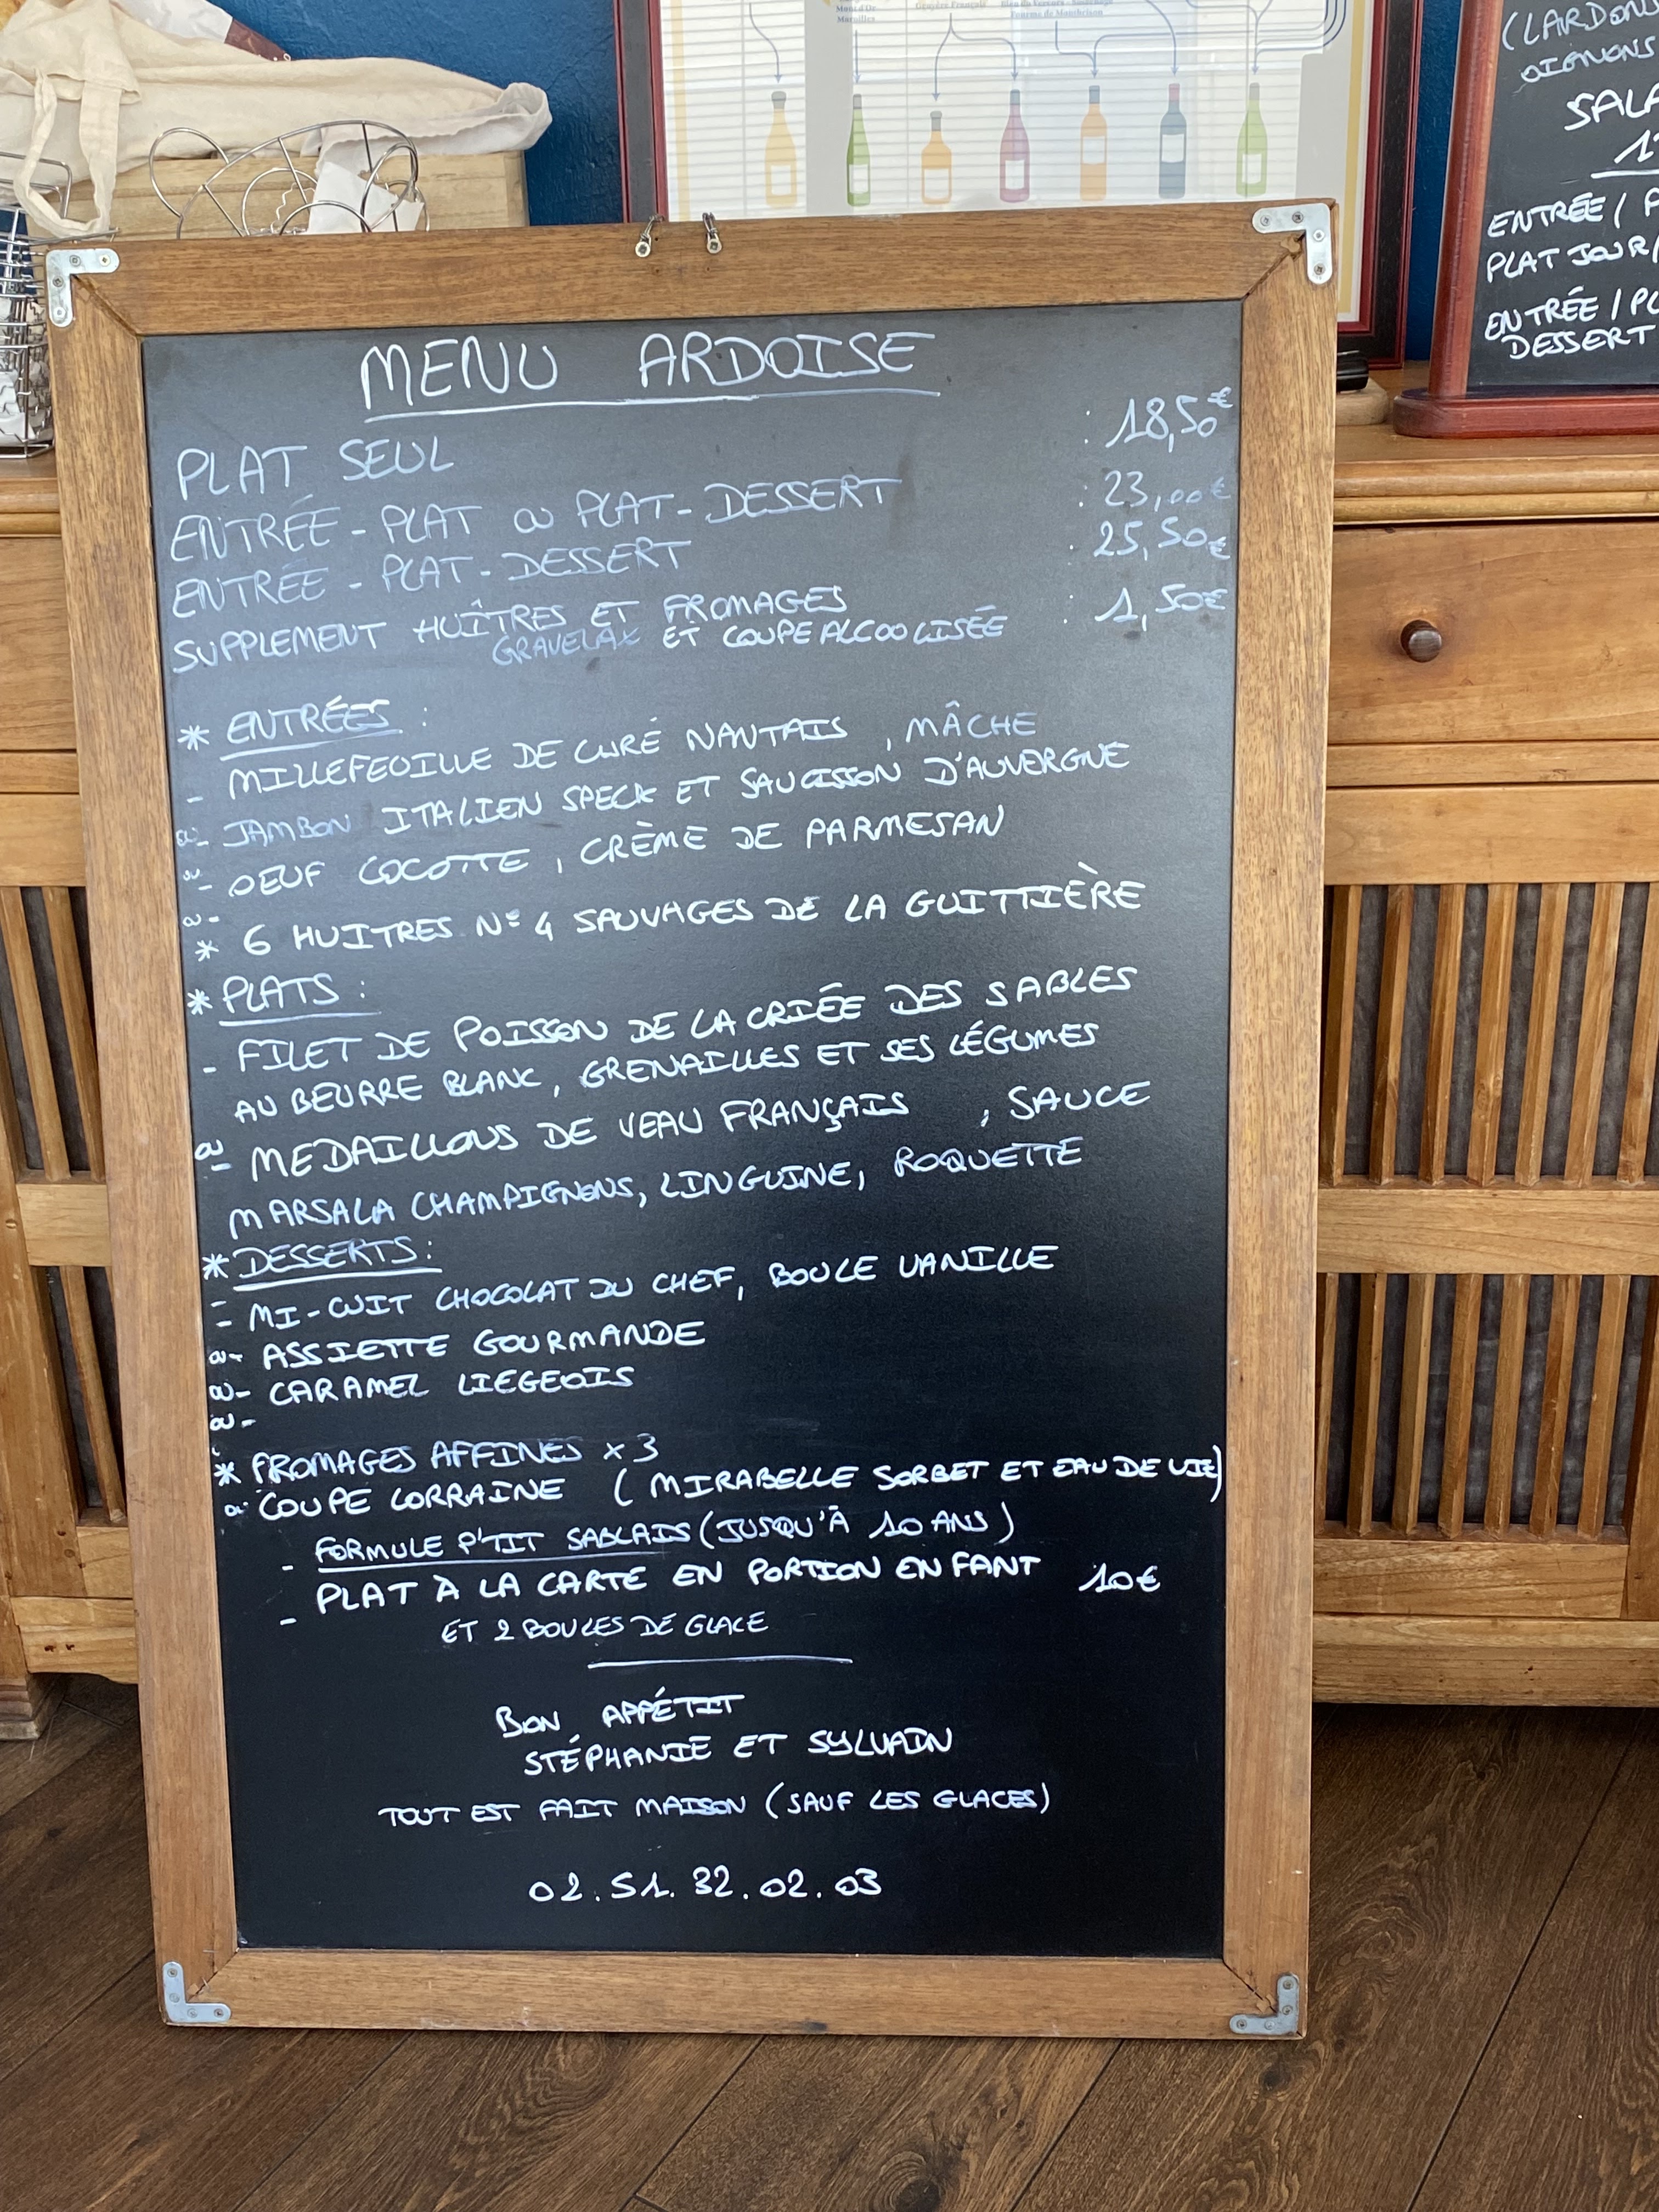 Mont d'Or
Marolles
Gruyère Français
Fourme de Montbrison
(LARDONS
OIGNONS
ENTRÉE /
PLAT JOUR /
ENTRÉE /
DESSERT
MENU ARDOISE
PLAT SEUL : 18,50€
ENTRÉE - PLAT OU PLAT - DESSERT : 23,00€
ENTRÉE - PLAT - DESSERT : 25,50€
SUPPLEMENT HUÎTRES ET FROMAGES : 1,50€
GRAVELAX ET COUPE ALCOOLISÉE
* ENTRÉES :
- MILLEFEUILLE DE CURÉ NANTAIS , MÂCHE
ou- JAMBON ITALIEN SPECK ET SAUCISSON D'AUVERGNE
ou- OEUF COCOTTE , CRÈME DE PARMESAN
ou-
* 6 HUITRES N° 4 SAUVAGES DE LA GUITTIÈRE
* PLATS :
- FILET DE POISSON DE LA CRIÉE DES SABLES
AU BEURRE BLANC, GRENAILLES ET SES LÉGUMES
ou- MEDAILLONS DE VEAU FRANÇAIS , SAUCE
MARSALA CHAMPIGNONS, LINGUINE, ROQUETTE
* DESSERTS :
- MI-CUIT CHOCOLAT DU CHEF, BOULE VANILLE
ou- ASSIETTE GOURMANDE
ou- CARAMEL LIEGEOIS
ou-
* FROMAGES AFFINES x 3
ou- COUPE LORRAINE ( MIRABELLE SORBET ET EAU DE VIE)
- FORMULE P'TIT SABLAIS (JUSQU'À 10 ANS )
- PLAT À LA CARTE EN PORTION ENFANT 10€
ET 2 BOULES DE GLACE
BON APPÉTIT
STÉPHANIE ET SYLVAIN
TOUT EST FAIT MAISON (SAUF LES GLACES)
02.51.32.02.03